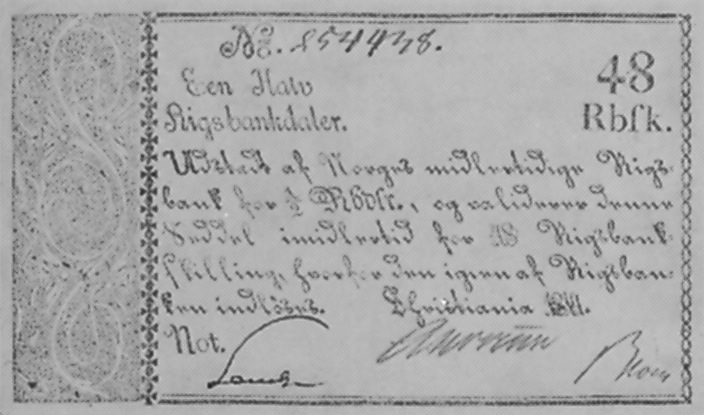 No. 254438.
Een Halv
Rigsbankdaler.
48
Rbsk.
Udstædt af Norges midlertidige Rigs-
bank for ½ Rbdlr., og validerer denne
Seddel imidlertid for 48 Rigsbank-
skilling, hvorfor den igien af Rigsban-
ken indlöses. Christiania 1814.
Not.